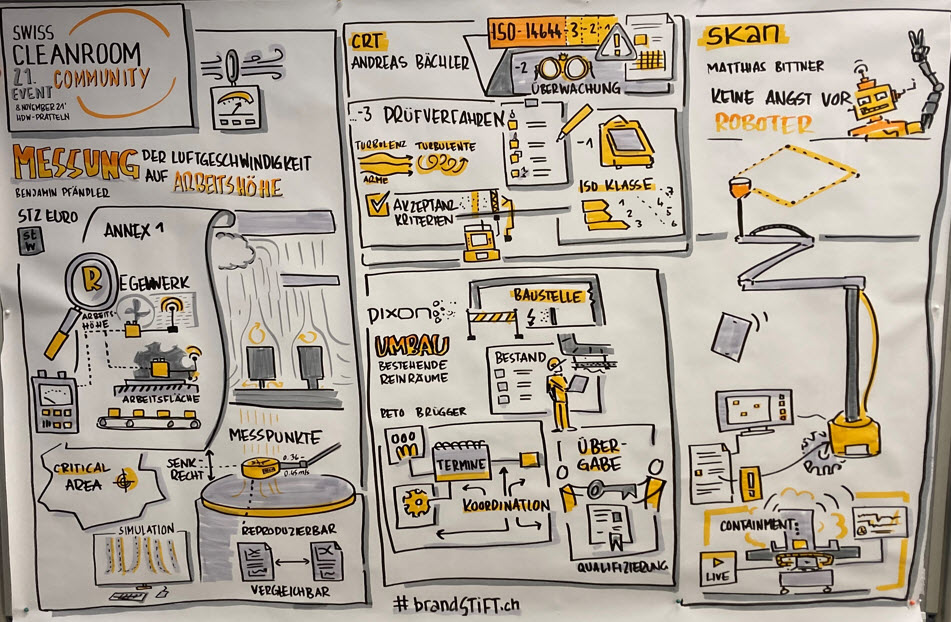 SWISS
CLEANROOM
21. COMMUNITY
EVENT
8 NOVEMBER 21'
HDW-PRATTELN
MESSUNG DER LUFTGESCHWINDIGKEIT
AUF ARBEITSHÖHE
BENJAMIN PFÄNDLER
STZ EURO
stw
ANNEX 1
REGELWERK
ARBEITS-
HÖHE
ARBEITSFLÄCHE
CRITICAL
AREA
SIMULATION
MESSPUNKTE
SENK-
RECHT
0.36-
0.45 m/s
REPRODUZIERBAR
VERGLEICHBAR
CRT
ANDREAS BÄCHLER
ISO-14644 3-2-1
-2
ÜBERWACHUNG
...-3 PRÜFVERFAHREN
TURBOLENZ TURBULENTE
ARME
AKZEPTANZ
KRITERIEN
-1
ISO KLASSE
1 2 3 4 5 6 7
DIXON
BAUSTELLE
UMBAU
BESTEHENDE
REINRÄUME
BESTAND
RETO BRÜGGER
TERMINE
KOORDINATION
ÜBER-
GABE
QUALIFIZIERUNG
#brandSTiFT.ch
SKAN
MATTHIAS BITTNER
KEINE ANGST VOR
ROBOTER
CONTAINMENT:
LIVE